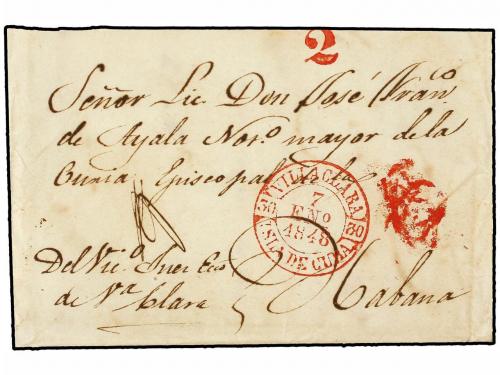 2
Señor Lic. Don José Franº
de Ayala Norº mayor de la
Curia Episcopal de la
VILLA CLARA
30 7 30
ENº
1848
ISLA DE CUBA
Del Vicº Juez Ecº
de Vª Clara
Habana